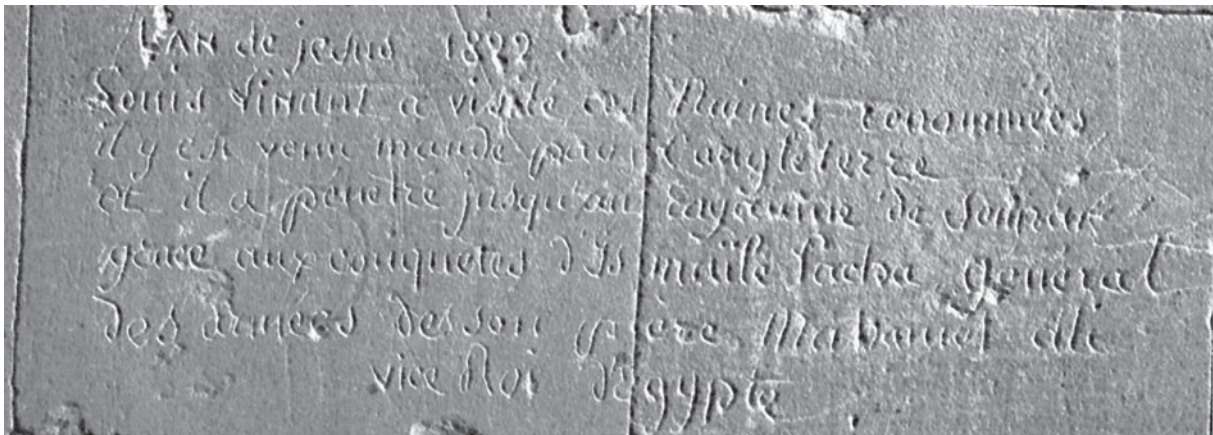 L'AN de jesus 1822
Louis Linant a visité ces Ruines renommées
il y est venu mandé par l'angleterre
et il a pénétré jusqu'au Rayaume de
grace aux conquetes d'Ismaïle Pacha general
des armées desson pere Mahamet Ali
vice Roi d'Egypte